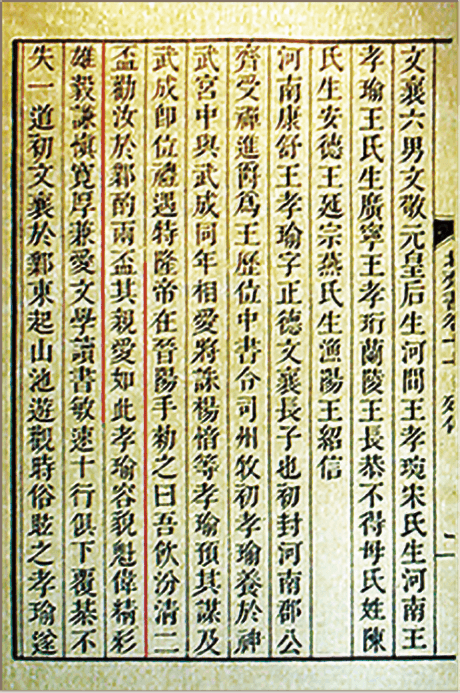 文襄六男文敬元皇后生河間王孝琬宋氏生河南王
孝瑜王氏生廣寧王孝珩蘭陵王長恭不得母氏姓陳
氏生安德王延宗燕氏生漁陽王紹信
河南康舒王孝瑜字正德文襄長子也初封河南郡公
齊受禪進爵爲王歷位中書令司州牧初孝瑜養於神
武宮中與武成同年相愛將誅楊愔等孝瑜預其謀及
武成卽位禮遇特隆帝在晉陽手勑之曰吾飲汾清二
盃勸汝於鄴酌兩盃其親愛如此孝瑜容貌魁偉精彩
雄毅謙愼寬厚兼愛文學讀書敏速十行俱下覆棊不
失一道初文襄於鄴東起山池遊觀時俗眩之孝瑜遂